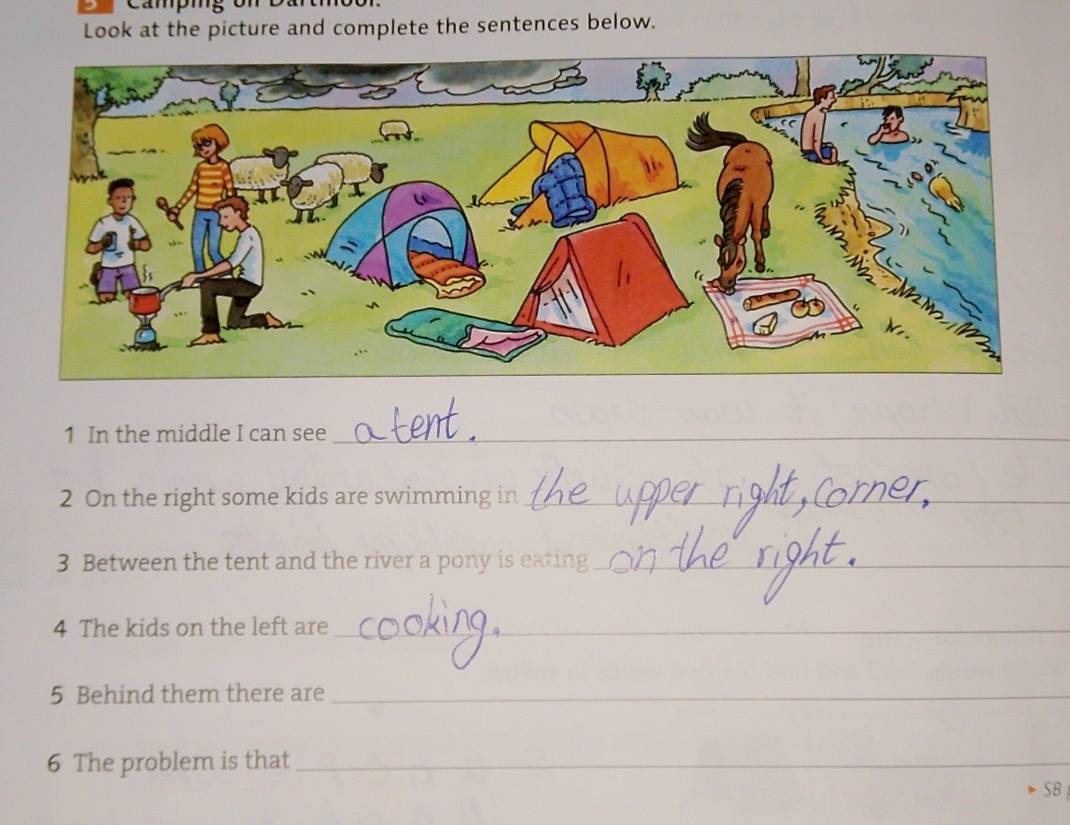 5 Camping on Dartmoor.
Look at the picture and complete the sentences below.
1 In the middle I can see a tent.
2 On the right some kids are swimming in the upper right, corner.
3 Between the tent and the river a pony is eating on the right.
4 The kids on the left are cooking.
5 Behind them there are
6 The problem is that
▸ SB